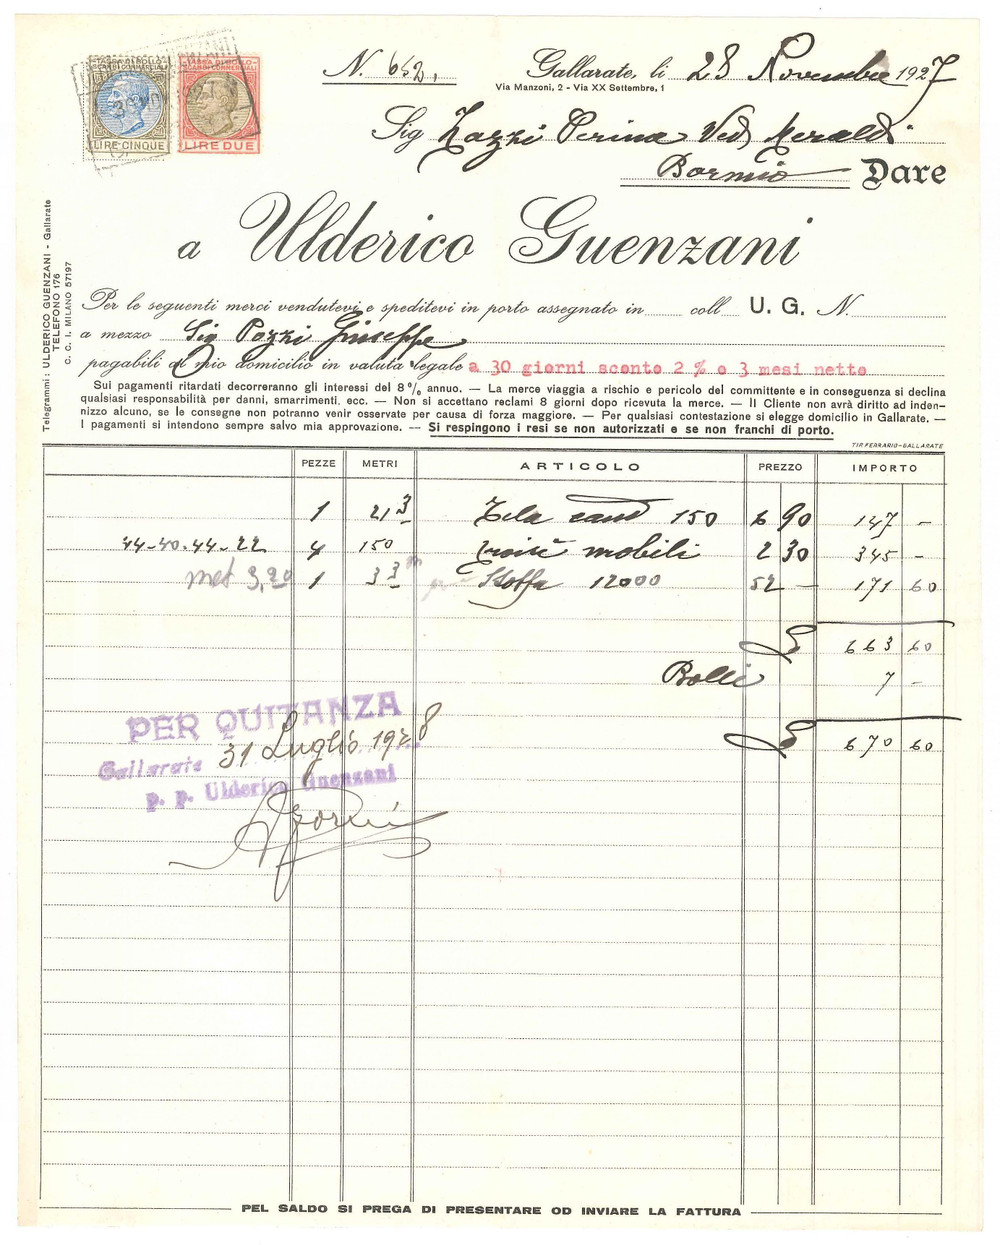 TASSA DI BOLLO
SCAMBI COMMERCIALI
LIRE CINQUE
TASSA DI BOLLO
SCAMBI COMMERCIALI
LIRE DUE
N. 652,
Gallarate, li 28 Novembre 1927
Via Manzoni, 2 - Via XX Settembre, 1
Sig Zazzi Perina Ved Meraldi
Bormio Dare
a Ulderico Guenzani
Telegrammi: ULDERICO GUENZANI - Gallarate
TELEFONO 176
C. C. I. MILANO 57197
Per le seguenti merci vendutevi e speditevi in porto assegnato in coll U. G. N.
a mezzo Sig Pozzi Giuseppe
pagabili al mio domicilio in valuta legale a 30 giorni sconto 2 % o 3 mesi netto
Sui pagamenti ritardati decorreranno gli interessi del 8% annuo. — La merce viaggia a rischio e pericolo del committente e in conseguenza si declina
qualsiasi responsabilità per danni, smarrimenti, ecc. — Non si accettano reclami 8 giorni dopo ricevuta la merce. — Il Cliente non avrà diritto ad inden-
nizzo alcuno, se le consegne non potranno venir osservate per causa di forza maggiore. — Per qualsiasi contestazione si elegge domicilio in Gallarate. —
I pagamenti si intendono sempre salvo mia approvazione. — Si respingono i resi se non autorizzati e se non franchi di porto.
TIP. FERRARIO - GALLARATE
PEZZE METRI ARTICOLO PREZZO IMPORTO
1 21 3 Tela cand 150 6 90 147 -
44-40.44-22 4 150 mobili 2 30 345 -
met 3,20 1 3 3 Stoffa 12000 52 - 171 60
£ 663 60
Bolli 7 -
£ 670 60
PER QUITANZA
Gallarate 31 Luglio 1928
p. p. Ulderico Guenzani
PEL SALDO SI PREGA DI PRESENTARE OD INVIARE LA FATTURA